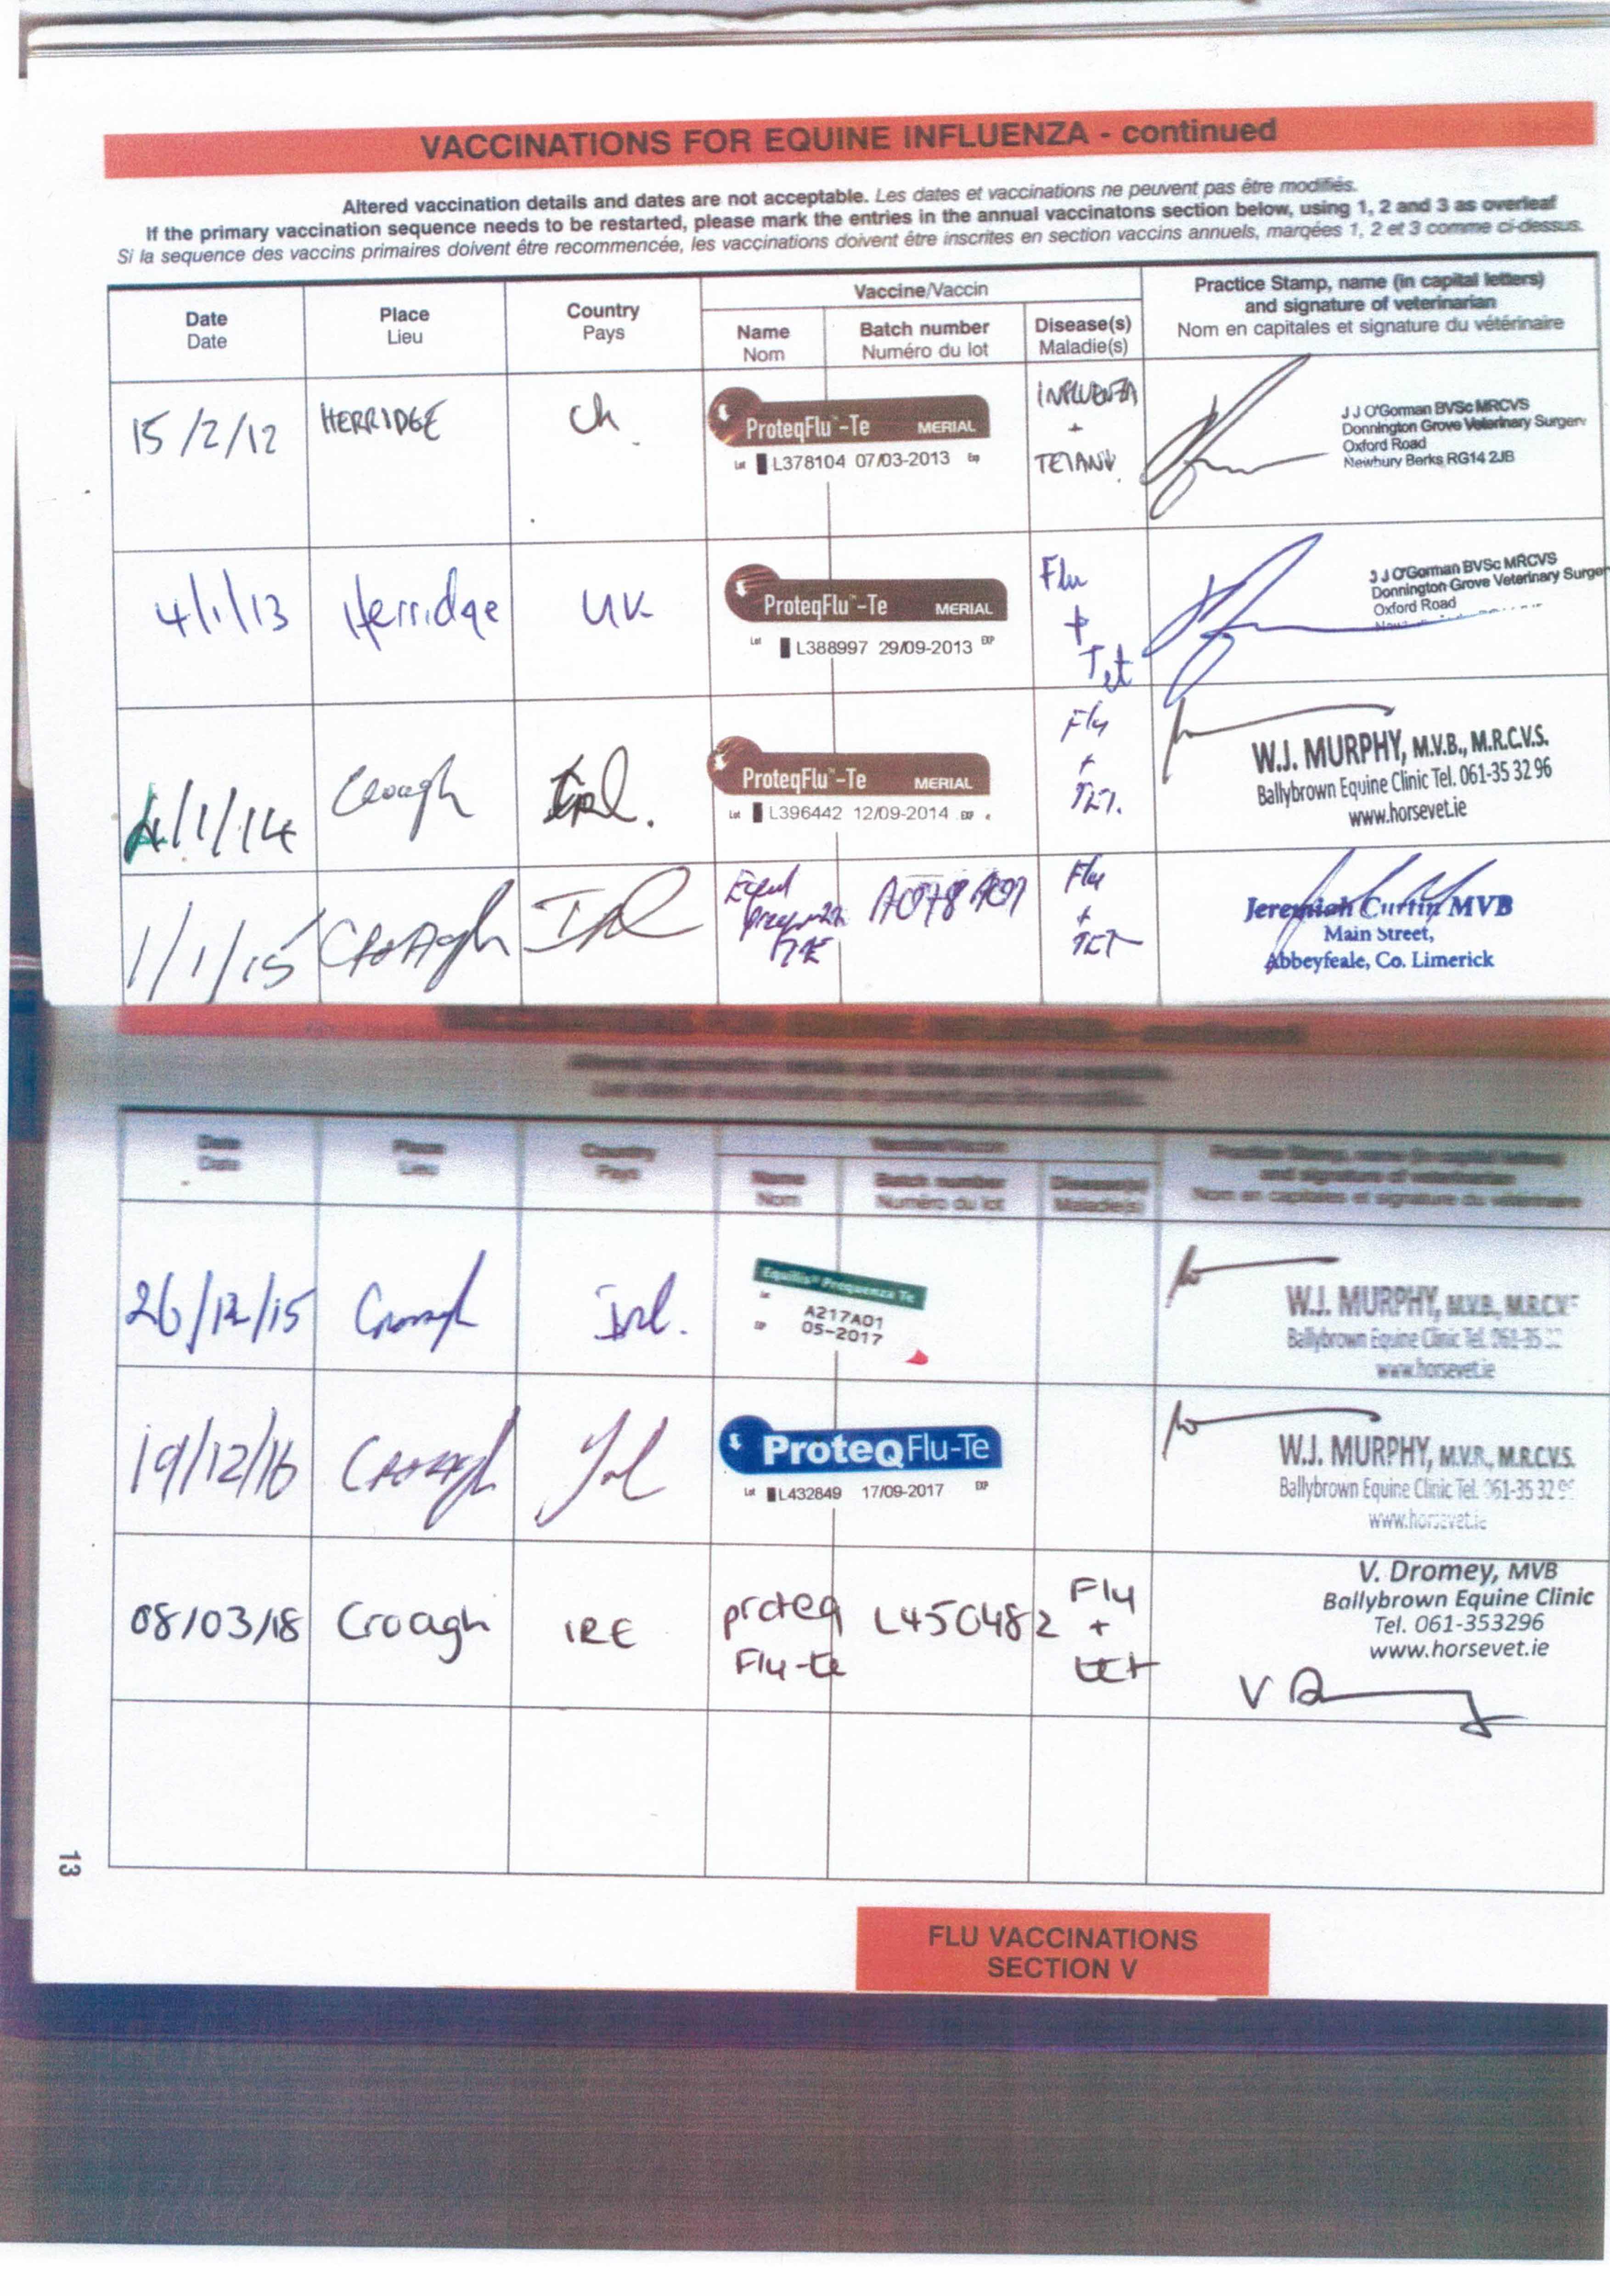 VACCINATIONS FOR EQUINE INFLUENZA - continued
Altered vaccination details and dates are not acceptable. Les dates et vaccinations ne peuvent pas être modifiés.
If the primary vaccination sequence needs to be restarted, please mark the entries in the annual vaccinatons section below, using 1, 2 and 3 as overleaf
Si la sequence des vaccins primaires doivent être recommencée, les vacçinations doivent être inscrites en section vaccins annuels, marqées 1, 2 et 3 comme ci-dessus.
Date
Date
Place
Lieu
Country
Pays
Vaccine/Vaccin
Name
Nom
Batch number
Numéro du lot
Disease(s)
Maladie(s)
Practice Stamp, name (in capital letters)
and signature of veterinarian
Nom en capitales et signature du vétérinaire
15/2/12
HERRIDGE
ProteqFlu™-Te MERIAL
Lot L378104 07/03-2013 Exp
INFLUENZA
+
J J O'Gorman BVSc MRCVS
Donnington Grove Veterinary Surgery
Oxford Road
Newbury Berks RG14 2JB
4/1/13
Herridge
UK
ProteqFlu™-Te MERIAL
Lot L388997 29/09-2013 EXP
Flu
+
Tet
J J O'Gorman BVSc MRCVS
Donnington Grove Veterinary Surger
Oxford Road
4/1/14
Irl.
ProteqFlu™-Te MERIAL
Lot L396442 12/09-2014 EXP
Flu
+
TET.
W.J. MURPHY, M.V.B., M.R.C.V.S.
Ballybrown Equine Clinic Tel. 061-35 32 96
www.horsevet.ie
1/1/15
Croagh
IRL
TE
A078A01
Flu
+
TET
Jeremiah Curtin MVB
Main Street,
Abbeyfeale, Co. Limerick
Date
Date
Place
Lieu
Country
Pays
Name
Nom
Batch number
Numéro du lot
Disease(s)
Maladie(s)
and signature of veterinarian
Nom en capitales et signature du vétérinaire
26/12/15
Croagh
Irl.
Equilis® Prequenza Te
A217A01
05-2017
W.J. MURPHY, M.V.B., M.R.C.V.S
Ballybrown Equine Clinic Tel. 061-35
www.horsevet.ie
19/12/16
Croagh
Irl
ProteqFlu-Te
Lot L432849 17/09-2017 EXP
W.J. MURPHY, M.V.B., M.R.C.V.S.
Ballybrown Equine Clinic Tel. 061-35 32 96
www.horsevet.ie
08/03/18
Croagh
IRE
proteq
Flu-te
L450482
Flu
+
tet
V. Dromey, MVB
Ballybrown Equine Clinic
Tel. 061-353296
www.horsevet.ie
13
FLU VACCINATIONS
SECTION V